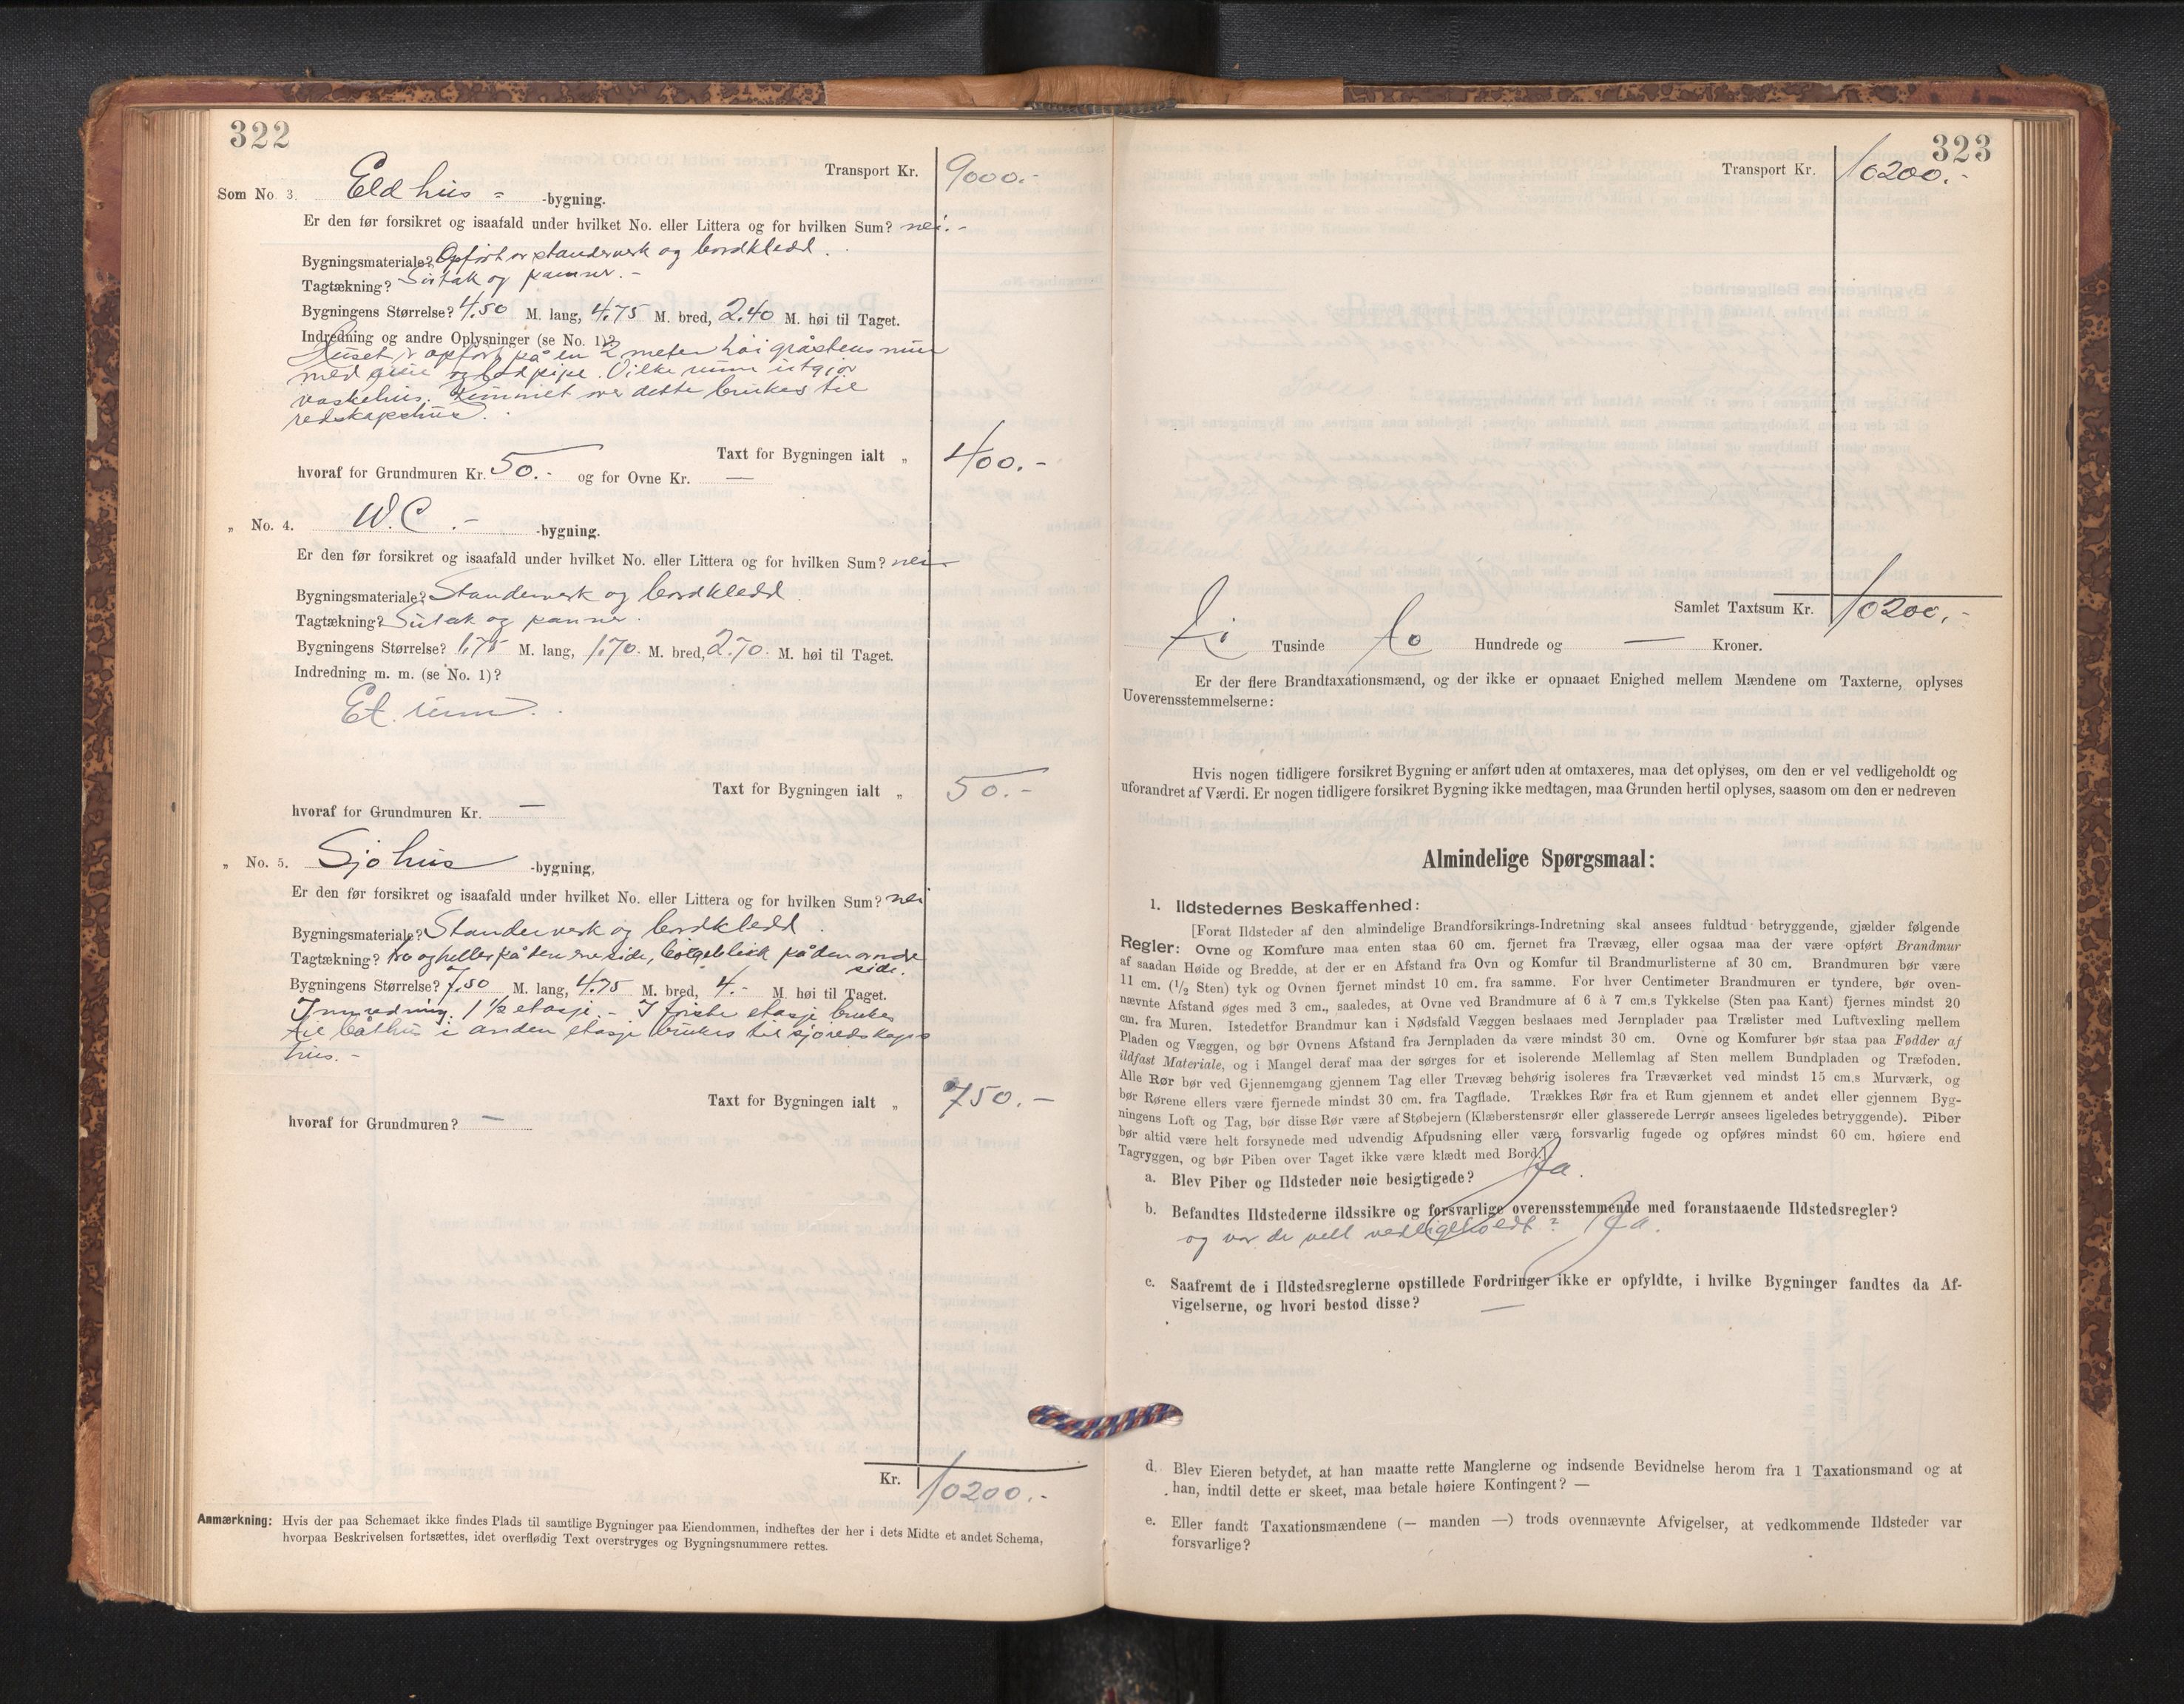 322
Transport Kr. 9000.-
Som No. 3. Eldhus - -bygning.
Er den før forsikret og isaafald under hvilket No. eller Littera og for hvilken Sum? nei.-
Bygningsmateriale? Opført av standerverk og bordkledd.
Tagtækning? Sutak og panner.-
Bygningens Størrelse? 4.50 M. lang, 4.75 M. bred, 2.40 M. høi til Taget.
Indredning og andre Oplysninger (se No. 1)?
Huset er opført på en 2 meter høi gråstensmur
med og pipe. rum utgjør
vaskehus. Rummet over dette brukes til
redskapshus.
Taxt for Bygningen ialt „ 400.-
hvoraf for Grundmuren Kr. 50.- og for Ovne Kr. —
„ No. 4. W.C.- -bygning.
Er den før forsikret og isaafald under hvilket No. eller Littera og for hvilken Sum? nei
Bygningsmateriale? Standerverk og bordkledd.
Tagtækning? Sutak og panner.
Bygningens Størrelse? 1.75 M. lang, 1.70. M. bred, 2.70. M. høi til Taget.
Indredning m. m. (se No. 1)?
Et rum.
Taxt for Bygningen ialt „ 50.-
hvoraf for Grundmuren Kr. —
„ No. 5. Sjøhus -bygning,
Er den før forsikret og isaafald under hvilket No. eller Littera og for hvilken Sum? nei
Bygningsmateriale? Standerverk og bordkledd.
Tagtækning? tro og heller på den ene side, bølgeblikk på den andre
side.
Bygningens Størrelse? 7.50 M. lang, 4.75 M. bred, 4.- M. høi til Taget.
Innredning. 1 ½ etasje.- I første etasje brukes
til båthus i anden etasje brukes til sjøredskaps
hus.-
Taxt for Bygningen ialt „ 750.-
hvoraf for Grundmuren? —
Kr. 10200.-
Anmærkning: Hvis der paa Schemaet ikke findes Plads til samtlige Bygninger paa Eiendommen, indheftes der her i dets Midte et andet Schema,
hvorpaa Beskrivelsen fortsættes, idet overflødig Text overstryges og Bygningsnummere rettes.
323
Transport Kr. 10200.-
Samlet Taxtsum Kr. 10200.-
Ti Tusinde to Hundrede og — Kroner.
Er der flere Brandtaxationsmænd, og der ikke er opnaaet Enighed mellem Mændene om Taxterne, oplyses
Uoverensstemmelserne:
Hvis nogen tidligere forsikret Bygning er anført uden at omtaxeres, maa det oplyses, om den er vel vedligeholdt og
uforandret af Værdi. Er nogen tidligere forsikret Bygning ikke medtagen, maa Grunden hertil oplyses, saasom om den er nedreven
Almindelige Spørgsmaal:
1. Ildstedernes Beskaffenhed:
[Forat Ildsteder af den almindelige Brandforsikrings-Indretning skal ansees fuldtud betryggende, gjælder følgende
Regler: Ovne og Komfure maa enten staa 60 cm. fjernet fra Trævæg, eller ogsaa maa der være opført Brandmur
af saadan Høide og Bredde, at der er en Afstand fra Ovn og Komfur til Brandmurlisterne af 30 cm. Brandmuren bør være
11 cm. (1/2 Sten) tyk og Ovnen fjernet mindst 10 cm. fra samme. For hver Centimeter Brandmuren er tyndere, bør oven-
nævnte Afstand øges med 3 cm., saaledes, at Ovne ved Brandmure af 6 à 7 cm.s Tykkelse (Sten paa Kant) fjernes mindst 20
cm. fra Muren. Istedetfor Brandmur kan i Nødsfald Væggen beslaaes med Jernplader paa Trælister med Luftvexling mellem
Pladen og Væggen, og bør Ovnens Afstand fra Jernpladen da være mindst 30 cm. Ovne og Komfurer bør staa paa Fødder af
ildfast Materiale, og i Mangel deraf maa der sørges for et isolerende Mellemlag af Sten mellem Bundpladen og Træfoden.
Alle Rør bør ved Gjennemgang gjennem Tag eller Trævæg behørig isoleres fra Træværket ved mindst 15 cm.s Murværk, og
bør Rørene ellers være fjernede mindst 30 cm. fra Tagflade. Trækkes Rør fra et Rum gjennem et andet eller gjennem Byg-
ningens Loft og Tag, bør disse Rør være af Støbejern (Klæberstensrør eller glasserede Lerrør ansees ligeledes betryggende). Piber
bør altid være helt forsynede med udvendig Afpudsning eller være forsvarlig fugede og opføres mindst 60 cm. høiere end
Tagryggen, og bør Piben over Taget ikke være klædt med Bord.]
a. Blev Piber og Ildsteder nøie besigtigede? Ja.
b. Befandtes Ildstederne ildssikre og forsvarlige overensstemmende med foranstaaende Ildstedsregler?
og var de vell vedligeholdt? Ja.
c. Saafremt de i Ildstedsreglerne opstillede Fordringer ikke er opfyldte, i hvilke Bygninger fandtes da Af-
vigelserne, og hvori bestod disse? —
d. Blev Eieren betydet, at han maatte rette Manglerne og indsende Bevidnelse herom fra 1 Taxationsmand og at
han, indtil dette er skeet, maa betale høiere Kontingent? —
e. Eller fandt Taxationsmændene (— manden —) trods ovennævnte Afvigelser, at vedkommende Ildsteder var
forsvarlige?